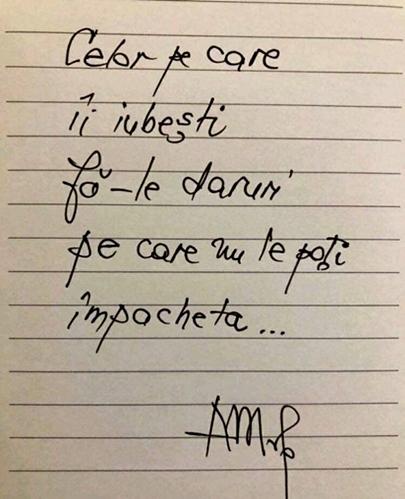 Celor pe care
îi iubești
fă-le daruri
pe care nu le poți
împacheta...